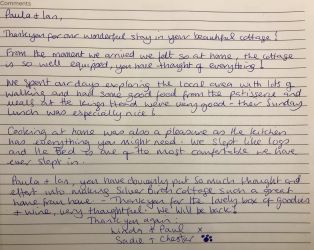 Comments
Paula + Ian,
Thankyou for our wonderful stay in your beautiful cottage!
From the moment we arrived we felt so at home, the cottage
is so well equipped, you have thought of everything!
We spent our days exploring the local area with lots of
walking and had some good food from the patisserie and
meals at the Kings Head were very good - their Sunday
lunch was especially nice!
Cooking at home was also a pleasure as the kitchen
has everything you might need. We slept like logs
and the Bed is one of the most comfortable we have
ever slept in.
Paula + Ian, you have obviously put so much thought and
effort into making Silver Birch Cottage such a great
home from home - Thankyou for the lovely box of goodies
+ wine, very thoughtful. We will be back!
Thankyou again.
+ Paul x
Sadie + Chester